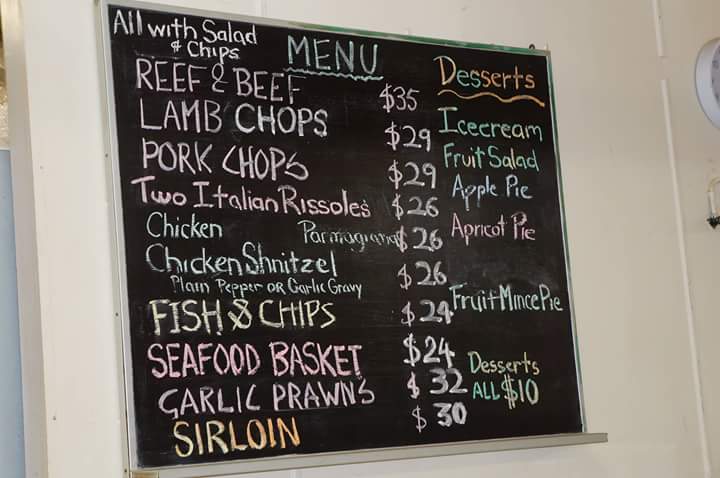 All with Salad
& Chips
MENU
REEF & BEEF $35
LAMB CHOPS $29
PORK CHOPS $29
Two Italian Rissoles $26
Chicken Parmagiana $26
Chicken Shnitzel $26
Plain Pepper or Garlic Gravy
FISH & CHIPS $24
SEAFOOD BASKET $24
GARLIC PRAWNS $32
SIRLOIN $30
Desserts
Icecream
Fruit Salad
Apple Pie
Apricot Pie
Fruit Mince Pie
Desserts
ALL $10